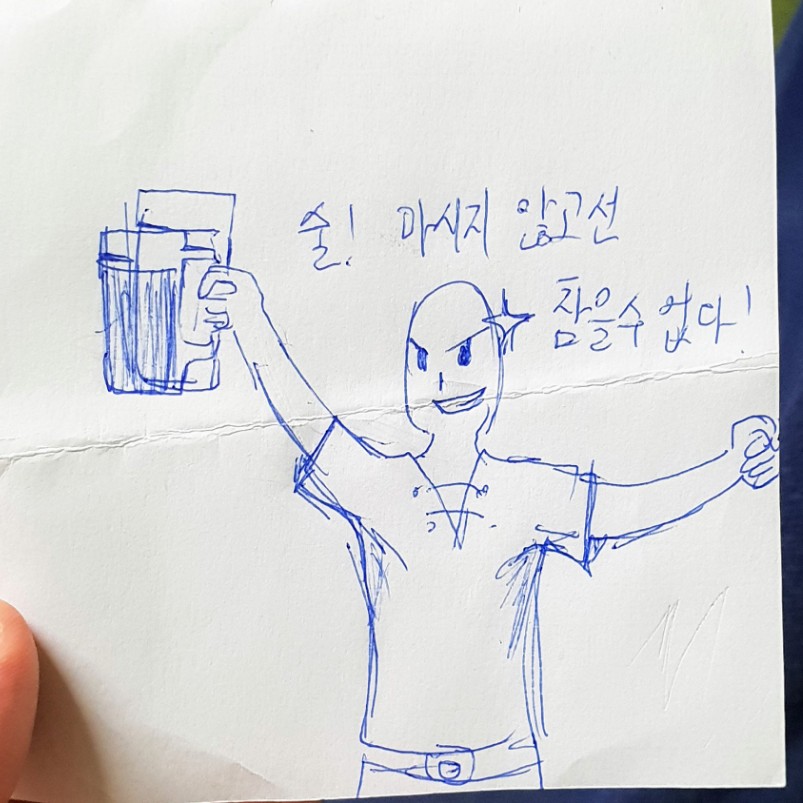 술! 마시지 않고선
참을수 없다!